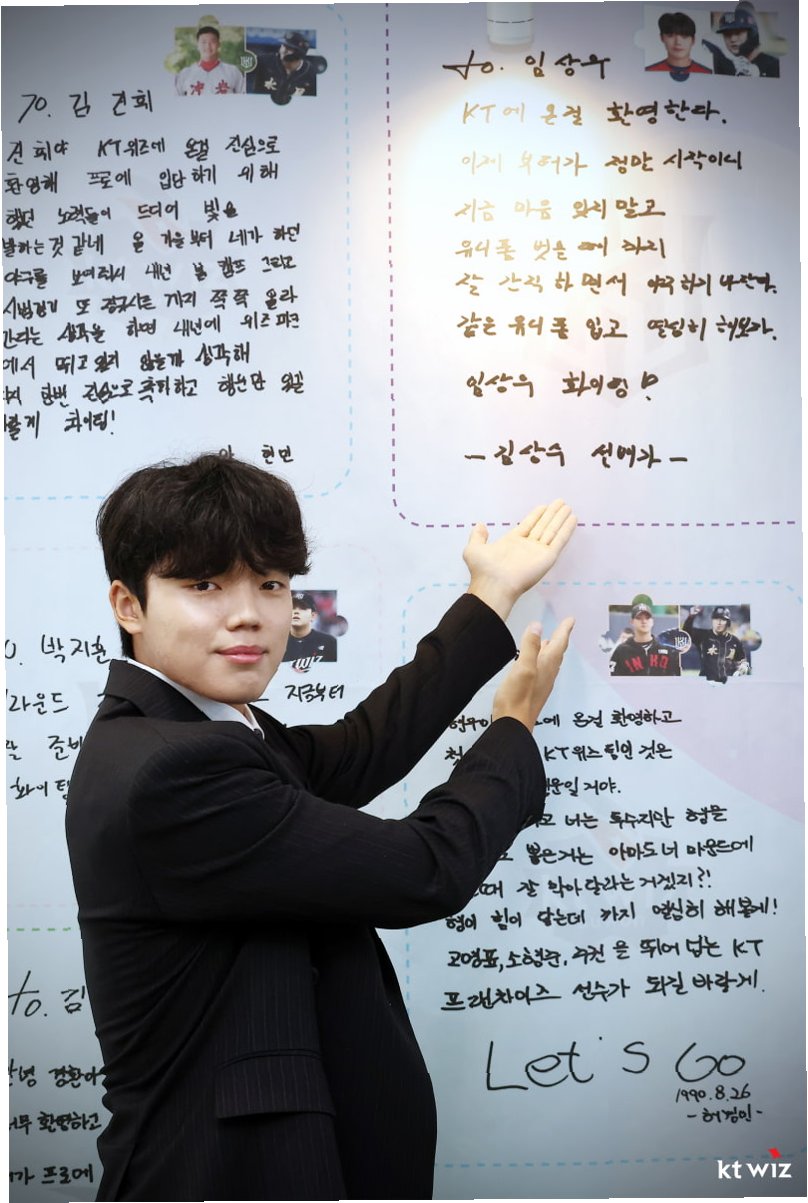 To. 김건희
건희야 KT위즈에 온걸 진심으로
환영해 프로에 입단하기 위해
했던 노력들이 드디어 빛을
발하는것 같네 올 가을부터 네가 하던
야구를 보여줘서 내년 봄 캠프 그리고
시범경기 또 정규시즌 까지 쭉쭉 올라
간다는 생각을 하면 내년에 위즈파크
에서 뛰고 있지 않을까 생각해
다시 한번 진심으로 축하하고 행운만
화이팅!
안현민
to. 임상우
KT에 온걸 환영한다.
이제 부터가 정말 시작이니
지금 마음 잊지말고
유니폼 벗을 때 까지
잘 간직 하면서 야구하기 바란다.
같은 유니폼 입고 열심히 해보자.
임상우 화이팅!?
-김상수 선배가-
박지훈
라운드
지금부터
준비
화이팅
에 온걸 환영하고
KT위즈 팀인 것은
운일 거야.
너는 투수지만 형을
뽑은거는 아마도 너 마운드에
때 잘 막아달라는거겠지?!
형이 힘이 닿는데 까지 열심히 해볼게!
고영표, 소형준, 주권 을 뛰어 넘는 KT
프랜차이즈 선수가 되길 바랄게.
Let's Go
1990.8.26
-허경민-
to. 김
안녕 경환아
너무 환영하고
가 프로에
kt wiz